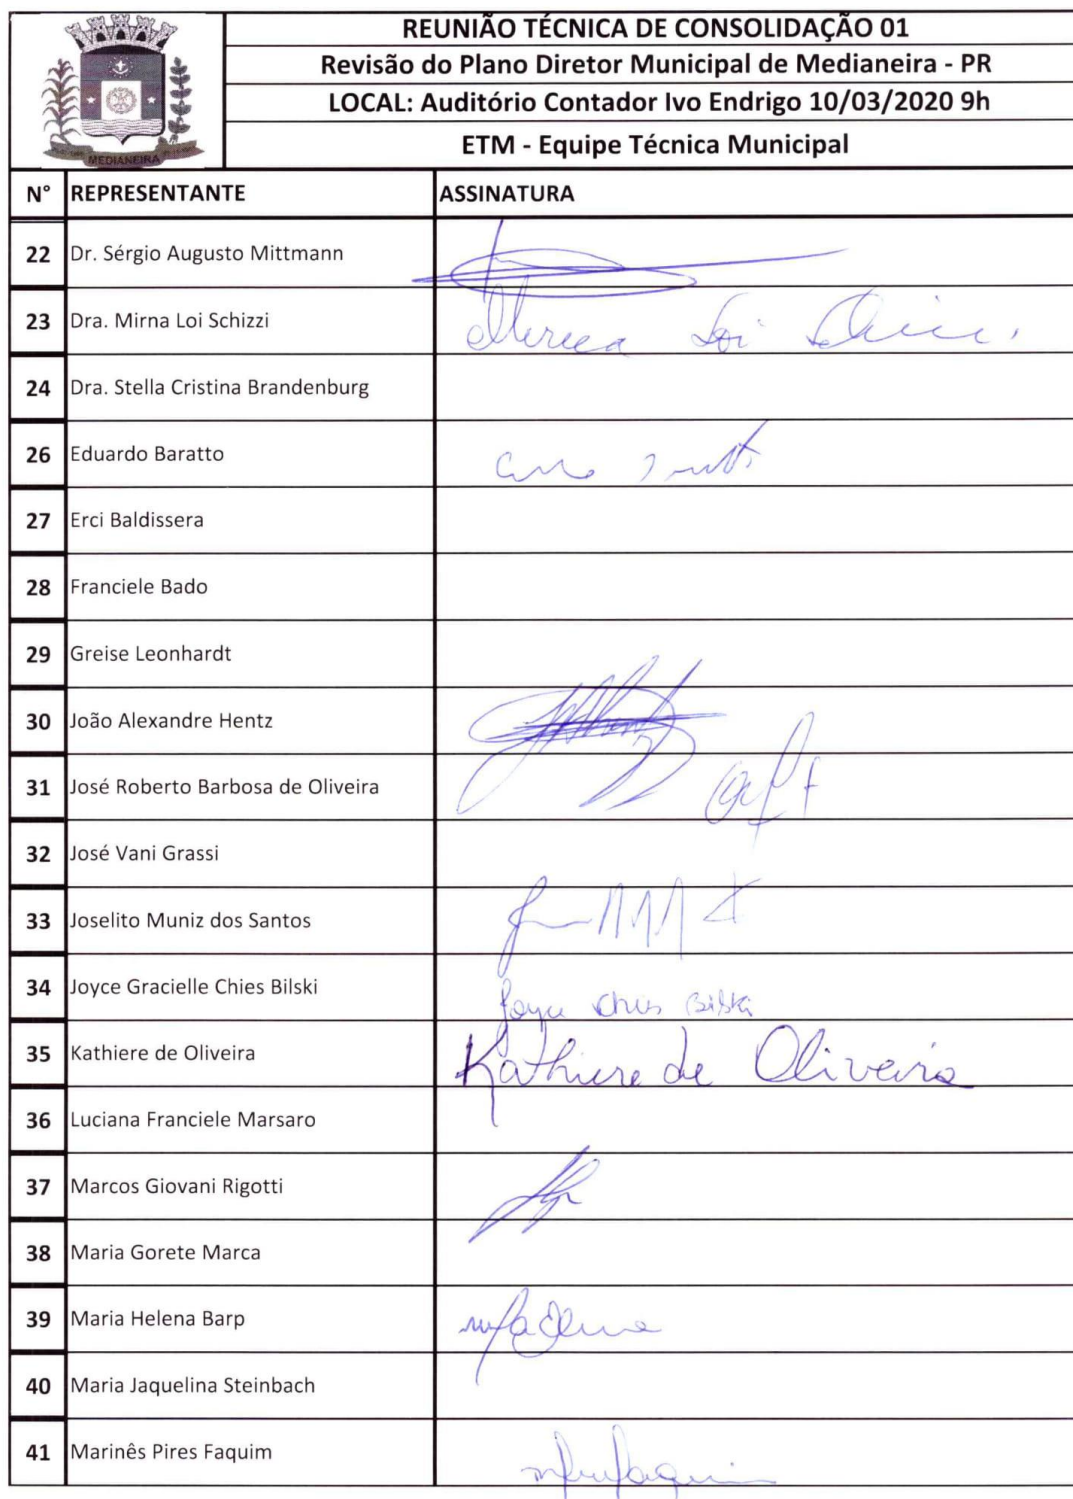 REUNIÃO TÉCNICA DE CONSOLIDAÇÃO 01
Revisão do Plano Diretor Municipal de Medianeira - PR
LOCAL: Auditório Contador Ivo Endrigo 10/03/2020 9h
ETM - Equipe Técnica Municipal
MEDIANEIRA
N° REPRESENTANTE ASSINATURA
22 Dr. Sérgio Augusto Mittmann
23 Dra. Mirna Loi Schizzi Loi
24 Dra. Stella Cristina Brandenburg
26 Eduardo Baratto
27 Erci Baldissera
28 Franciele Bado
29 Greise Leonhardt
30 João Alexandre Hentz
31 José Roberto Barbosa de Oliveira
32 José Vani Grassi
33 Joselito Muniz dos Santos
34 Joyce Gracielle Chies Bilski Joyce Chies Bilski
35 Kathiere de Oliveira Kathiere de Oliveira
36 Luciana Franciele Marsaro
37 Marcos Giovani Rigotti
38 Maria Gorete Marca
39 Maria Helena Barp
40 Maria Jaquelina Steinbach
41 Marinês Pires Faquim